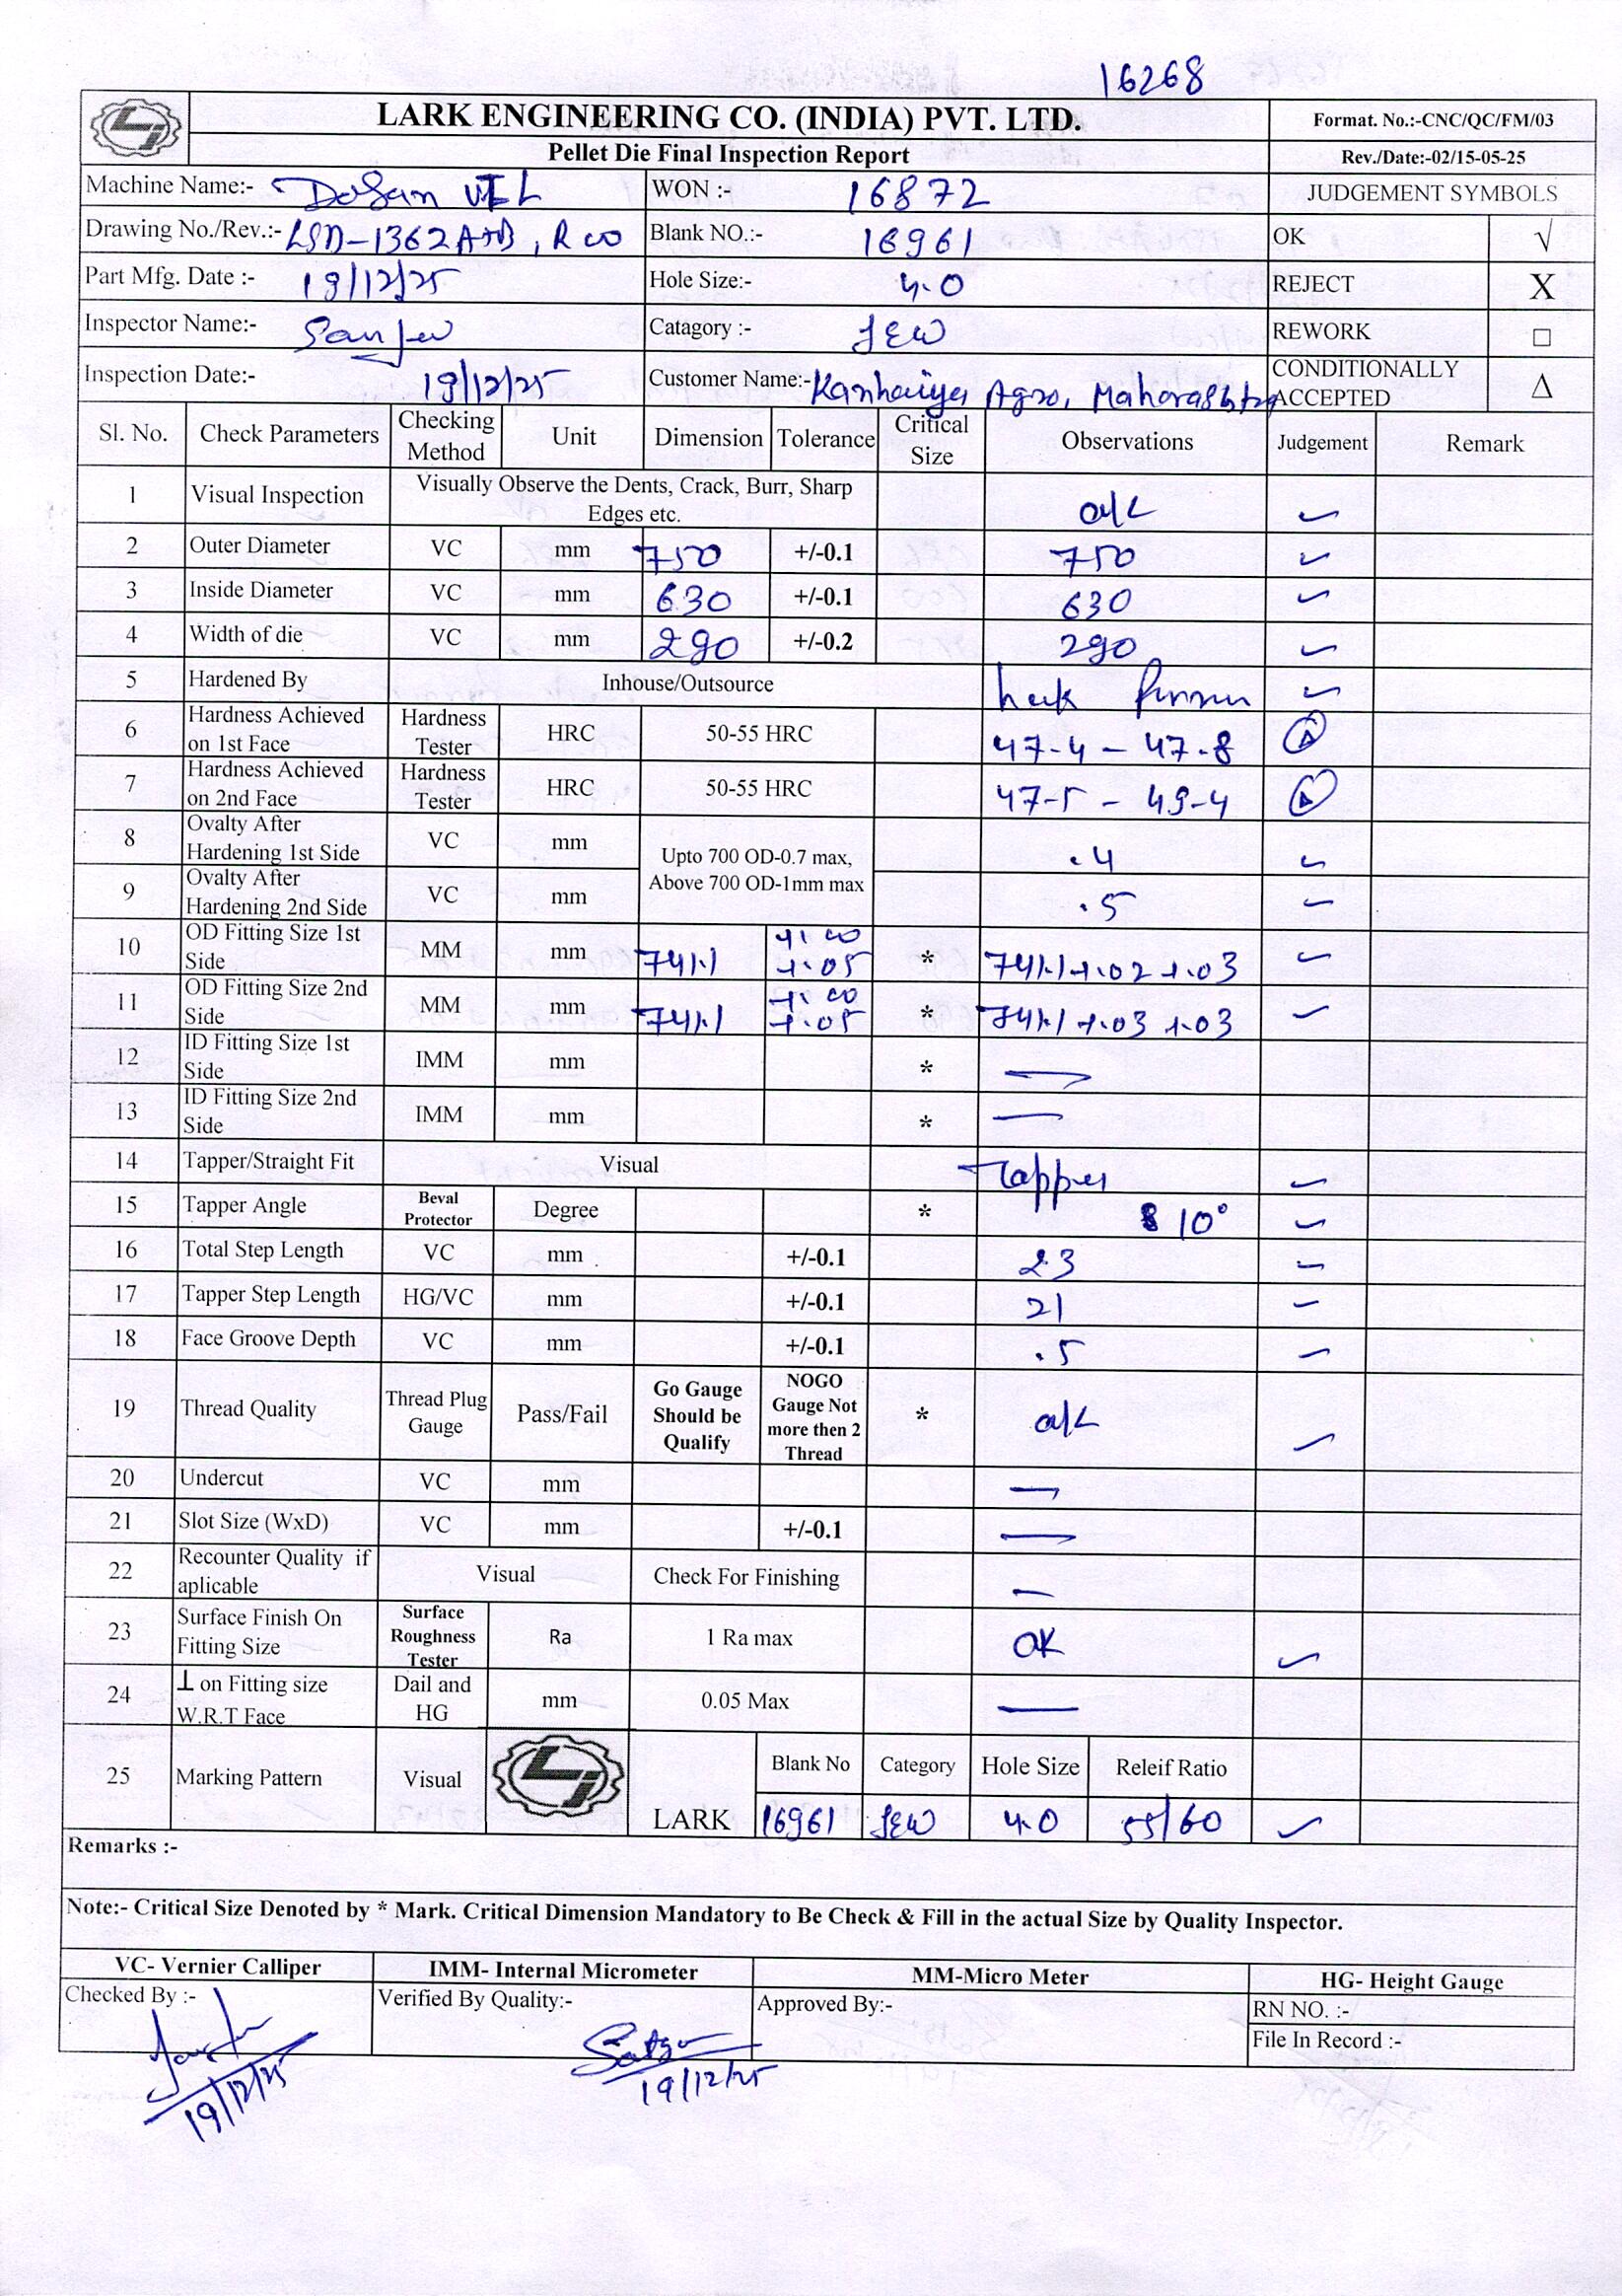 16268
LARK ENGINEERING CO. (INDIA) PVT. LTD.
Format. No.:-CNC/QC/FM/03
Pellet Die Final Inspection Report
Rev./Date:-02/15-05-25
Machine Name:- Dosan VTL WON :- 16872 JUDGEMENT SYMBOLS
Drawing No./Rev.:- LSD-1362A+B, R00 Blank NO.:- 16961 OK √
Part Mfg. Date :- 19/12/25 Hole Size:- 4.0 REJECT X
Inspector Name:- Sanjev Catagory :- JEW REWORK □
Inspection Date:- 19/12/25 Customer Name:- Kanhaiya Agro, Maharashtra CONDITIONALLY ACCEPTED Δ
Sl. No. Check Parameters Checking Method Unit Dimension Tolerance Critical Size Observations Judgement Remark
1 Visual Inspection Visually Observe the Dents, Crack, Burr, Sharp Edges etc. o/k ✓
2 Outer Diameter VC mm 750 +/-0.1 750 ✓
3 Inside Diameter VC mm 630 +/-0.1 630 ✓
4 Width of die VC mm 290 +/-0.2 290 ✓
5 Hardened By Inhouse/Outsource ✓
6 Hardness Achieved on 1st Face Hardness Tester HRC 50-55 HRC 47-4 - 47-8 Δ
7 Hardness Achieved on 2nd Face Hardness Tester HRC 50-55 HRC 47-5 - 49-4 Δ
8 Ovalty After Hardening 1st Side VC mm Upto 700 OD-0.7 max, Above 700 OD-1mm max .4 ✓
9 Ovalty After Hardening 2nd Side VC mm .5 ✓
10 OD Fitting Size 1st Side MM mm 741.1 +.00 +.05 * 741.1 +.02 +.03 ✓
11 OD Fitting Size 2nd Side MM mm 741.1 +.00 +.05 * 741.1 +.03 +.03 ✓
12 ID Fitting Size 1st Side IMM mm * —
13 ID Fitting Size 2nd Side IMM mm * —
14 Tapper/Straight Fit Visual Tapper ✓
15 Tapper Angle Beval Protector Degree * 10° ✓
16 Total Step Length VC mm +/-0.1 23 ✓
17 Tapper Step Length HG/VC mm +/-0.1 21 ✓
18 Face Groove Depth VC mm +/-0.1 .5 ✓
19 Thread Quality Thread Plug Gauge Pass/Fail Go Gauge Should be Qualify NOGO Gauge Not more then 2 Thread * o/k ✓
20 Undercut VC mm —
21 Slot Size (WxD) VC mm +/-0.1 —
22 Recounter Quality if aplicable Visual Check For Finishing —
23 Surface Finish On Fitting Size Surface Roughness Tester Ra 1 Ra max OK ✓
24 ⊥ on Fitting size W.R.T Face Dail and HG mm 0.05 Max —
25 Marking Pattern Visual LARK Blank No Category Hole Size Releif Ratio
16961 JEW 4.0 55/60 ✓
Remarks :-
Note:- Critical Size Denoted by * Mark. Critical Dimension Mandatory to Be Check & Fill in the actual Size by Quality Inspector.
VC- Vernier Calliper IMM- Internal Micrometer MM-Micro Meter HG- Height Gauge
Checked By :- Verified By Quality:- Approved By:- RN NO. :-
File In Record :-
19/12/25 19/12/25